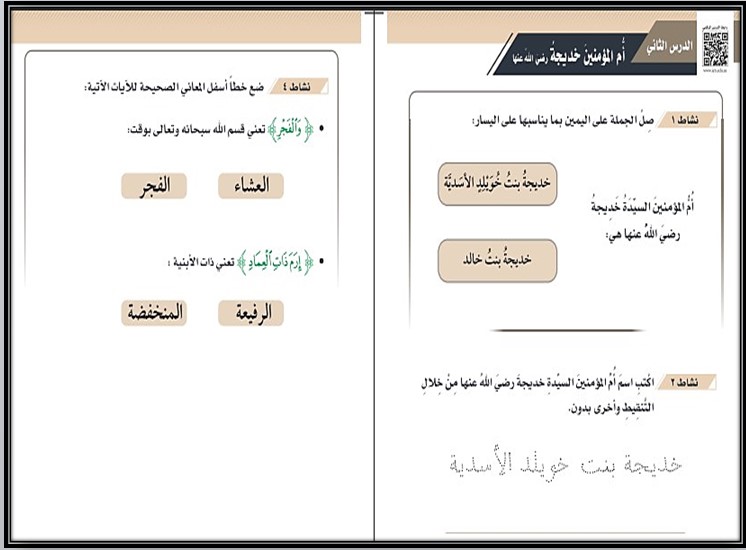 الدرس الثاني
أم المؤمنين خديجة رضي الله عنها
نشاط ١
صِلْ الجملة على اليمين بما يناسبها على اليسار:
أُمُّ المؤمنينَ السيّدَةُ خَدِيجةُ
رضيَ اللهُ عنها هيَ:
خديجةُ بنتُ خُوَيْلِدِ الأسَديَّة
خديجةُ بنتُ خالد
نشاط ٢
اكْتبِ اسمَ أُمِّ المؤمنينَ السيّدةِ خديجةَ رضيَ اللهُ عنها مِنْ خِلالِ
التَّنقيطِ وأخرى بدون.
خديجة بنت خويلد الأسدية
نشاط ٤
ضع خطاً أسفل المعاني الصحيحة للآيات الآتية:
• ﴿ وَٱلْفَجْرِ ﴾ تعني قسم الله سبحانه وتعالى بوقت:
العشاء
الفجر
• ﴿ إِرَمَ ذَاتِ ٱلْعِمَادِ ﴾ تعني ذات الأبنية :
الرفيعة
المنخفضة